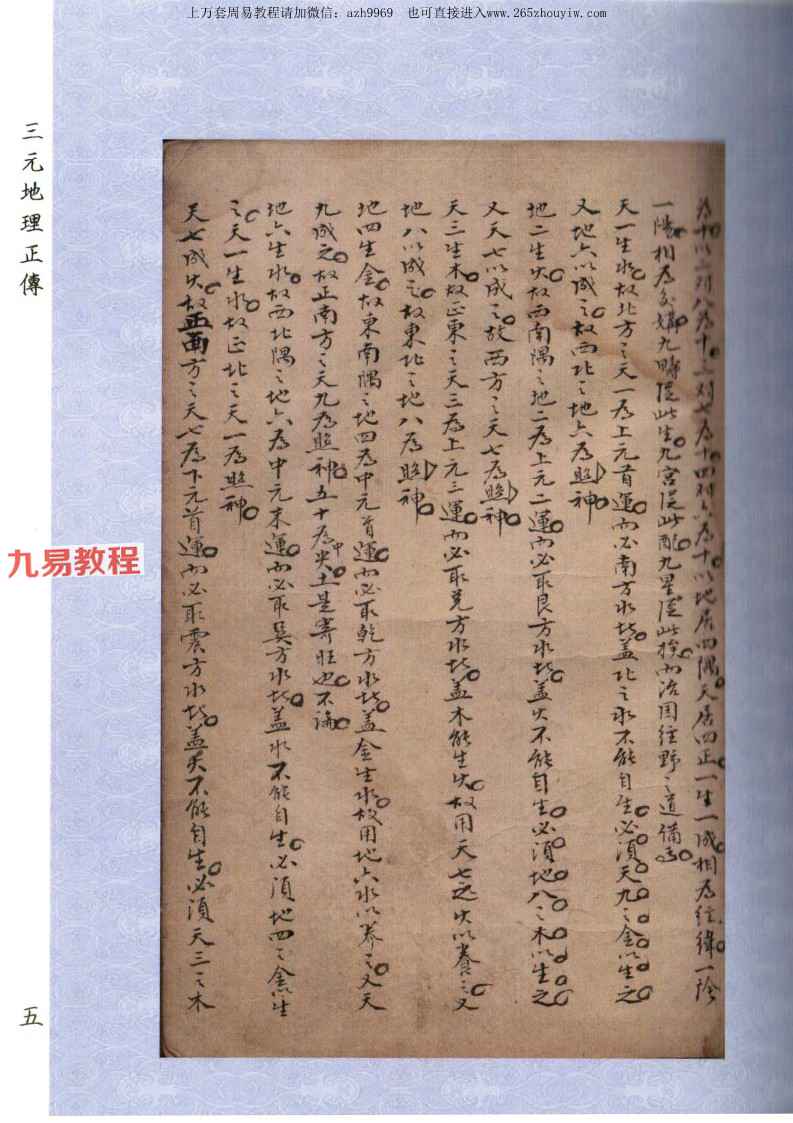 上万套周易教程请加微信：azh9969　也可直接进入www.265zhouyiw.com
三元地理正傳
九易教程
五
為十以二对八為十三对七為十四对六為十以地居四隅天居四正一生一成相為经緯一陰
一陽相為 九疇従此生九宮従此配九星従此 而治国经野之道備焉
天一生水故北方之天一為上元首運而必南方水批盖北之水不能自生必須天九之金以生之
又地六以成之故西北之地六為照神
地二生火故西南隅之地二為上元二運而必取艮方水批盖火不能自生必須地八之木以生之
又天七以成之故西方之天七為照神
天三生木故正東之天三為上元三運而必取兌方水批盖木能生火故用天七之火以養之又
地八以成之故東北之地八為照神
地四生金故東南隅之地四為中元首運而必取乾方水批盖金生水故用地六水以养之又天
九成之故正南方之天九為照神五十為中央土是寄旺也不論
地六生水故西北隅之地六為中元末運而必取巽方水批盖水不能自生必須地四之金以生
之天一生水故正北之天一為照神
天七成火故正面方之天七為下元首運而必取震方水批盖火不能自生必須天三之木